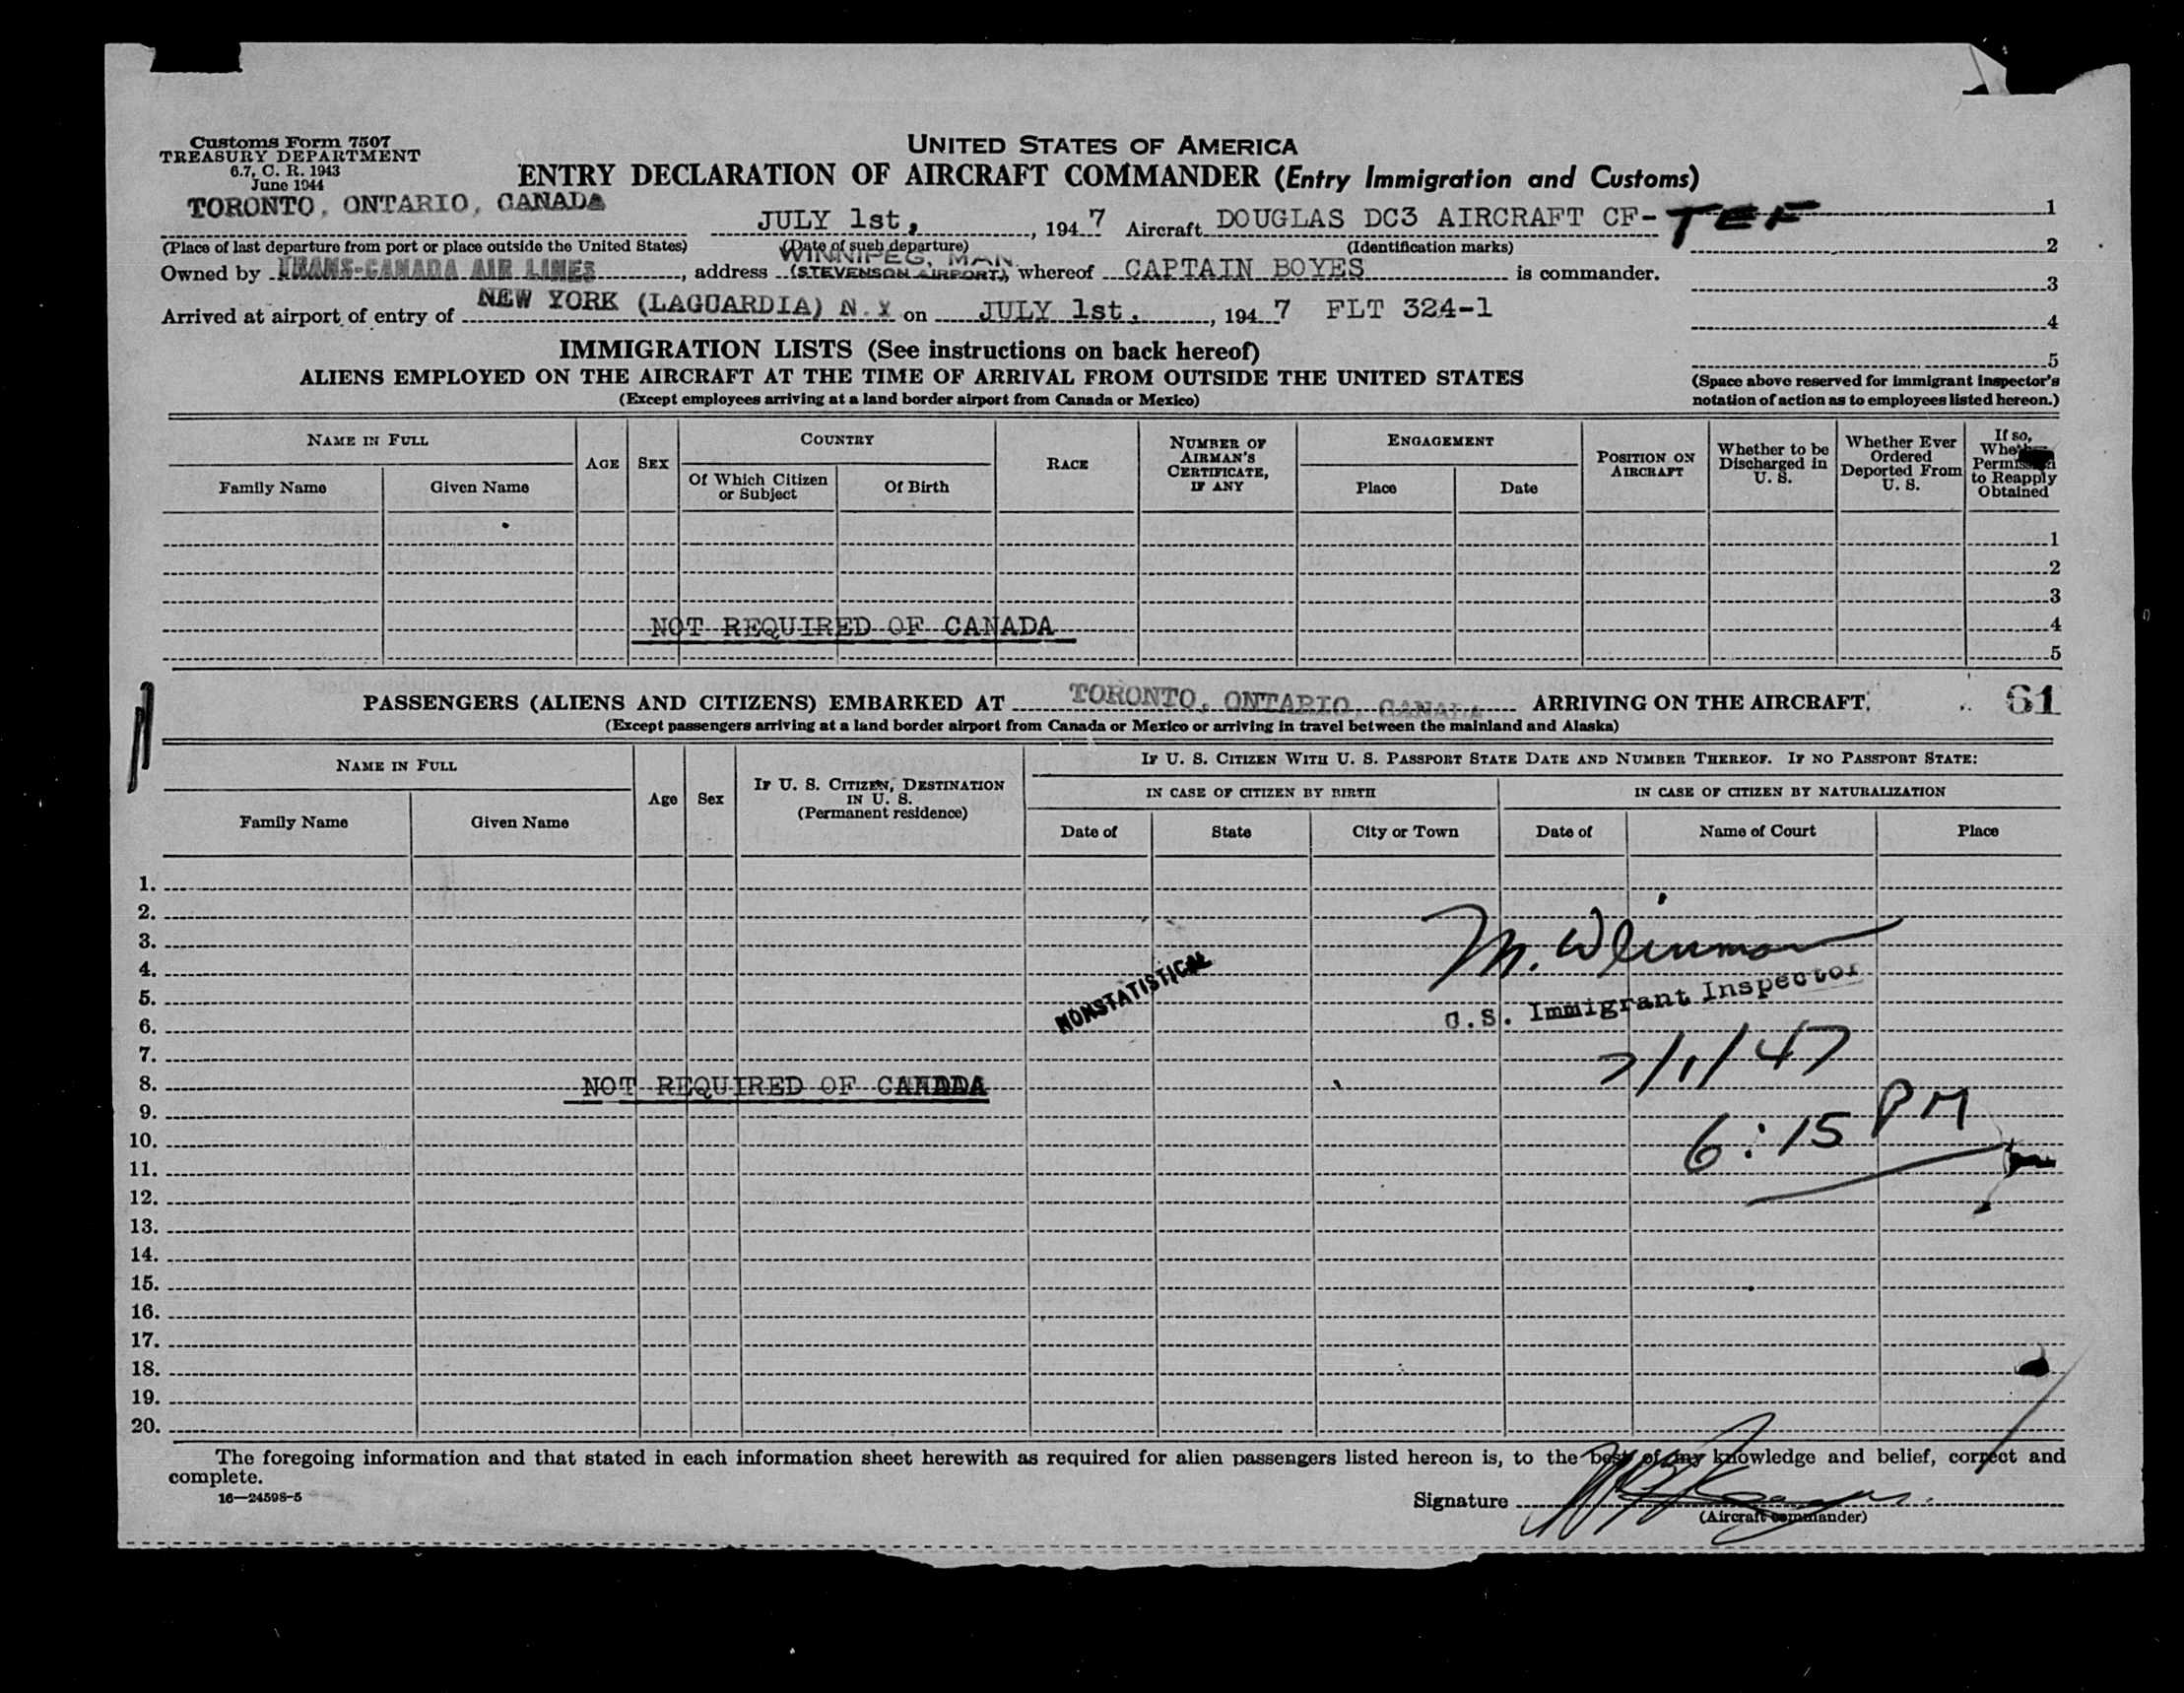 Customs Form 7507
TREASURY DEPARTMENT
6.7, C. R. 1943
June 1944
UNITED STATES OF AMERICA
ENTRY DECLARATION OF AIRCRAFT COMMANDER (Entry Immigration and Customs)
TORONTO, ONTARIO, CANADA JULY 1st, , 194 7 Aircraft DOUGLAS DC3 AIRCRAFT CF-TEF 1
(Place of last departure from port or place outside the United States) (Date of such departure) (Identification marks) 2
Owned by TRANS-CANADA AIR LINES , address WINNIPEG, MAN. (STEVENSON AIRPORT) whereof CAPTAIN BOYES is commander.
3
Arrived at airport of entry of NEW YORK (LAGUARDIA) N.Y on JULY 1st. , 194 7 FLT 324-1
4
5
IMMIGRATION LISTS (See instructions on back hereof)
ALIENS EMPLOYED ON THE AIRCRAFT AT THE TIME OF ARRIVAL FROM OUTSIDE THE UNITED STATES
(Except employees arriving at a land border airport from Canada or Mexico)
(Space above reserved for immigrant inspector's
notation of action as to employees listed hereon.)
NAME IN FULL
Family Name Given Name
AGE SEX
COUNTRY
Of Which Citizen or Subject Of Birth
RACE
NUMBER OF AIRMAN'S CERTIFICATE, IF ANY
ENGAGEMENT
Place Date
POSITION ON AIRCRAFT
Whether to be Discharged in U. S.
Whether Ever Ordered Deported From U. S.
If so, Whether Permission to Reapply Obtained
1
2
3
NOT REQUIRED OF CANADA 4
5
PASSENGERS (ALIENS AND CITIZENS) EMBARKED AT TORONTO, ONTARIO, CANADA ARRIVING ON THE AIRCRAFT. 61
(Except passengers arriving at a land border airport from Canada or Mexico or arriving in travel between the mainland and Alaska)
NAME IN FULL
Family Name Given Name
Age Sex
IF U. S. CITIZEN, DESTINATION IN U. S. (Permanent residence)
IF U. S. CITIZEN WITH U. S. PASSPORT STATE DATE AND NUMBER THEREOF. IF NO PASSPORT STATE:
IN CASE OF CITIZEN BY BIRTH IN CASE OF CITIZEN BY NATURALIZATION
Date of State City or Town Date of Name of Court Place
1.
2.
3. M. Weinman
4.
5. NONSTATISTICAL U.S. Immigrant Inspector
6.
7. 7/1/47
8. NOT REQUIRED OF CANADA
9.
10. 6:15 PM
11.
12.
13.
14.
15.
16.
17.
18.
19.
20.
The foregoing information and that stated in each information sheet herewith as required for alien passengers listed hereon is, to the best of my knowledge and belief, correct and
complete.
16—24598-5
Signature
(Aircraft commander)